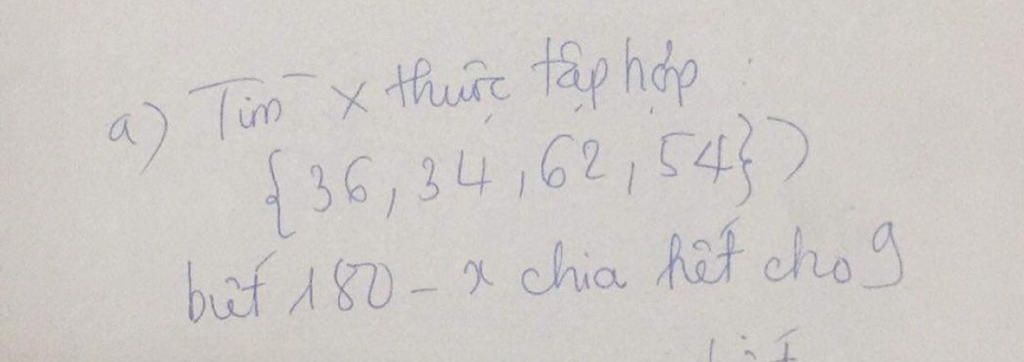 a) Tìm x thuộc tập hợp :
{36, 34, 62, 54})
biết 180 - x chia hết cho 9